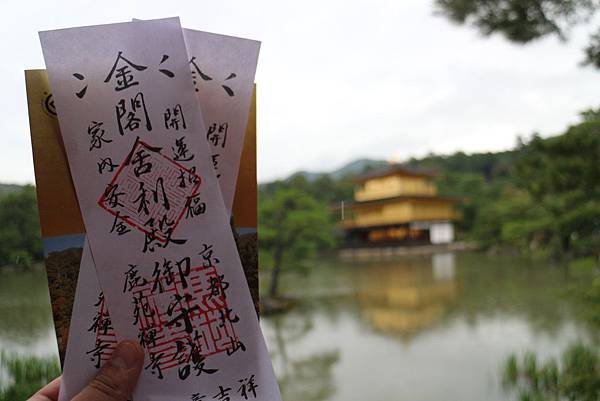 開運招福
京都北山
金閣舎利殿御守護
家内安全
鹿苑禅寺
吉祥
金
開
禅寺